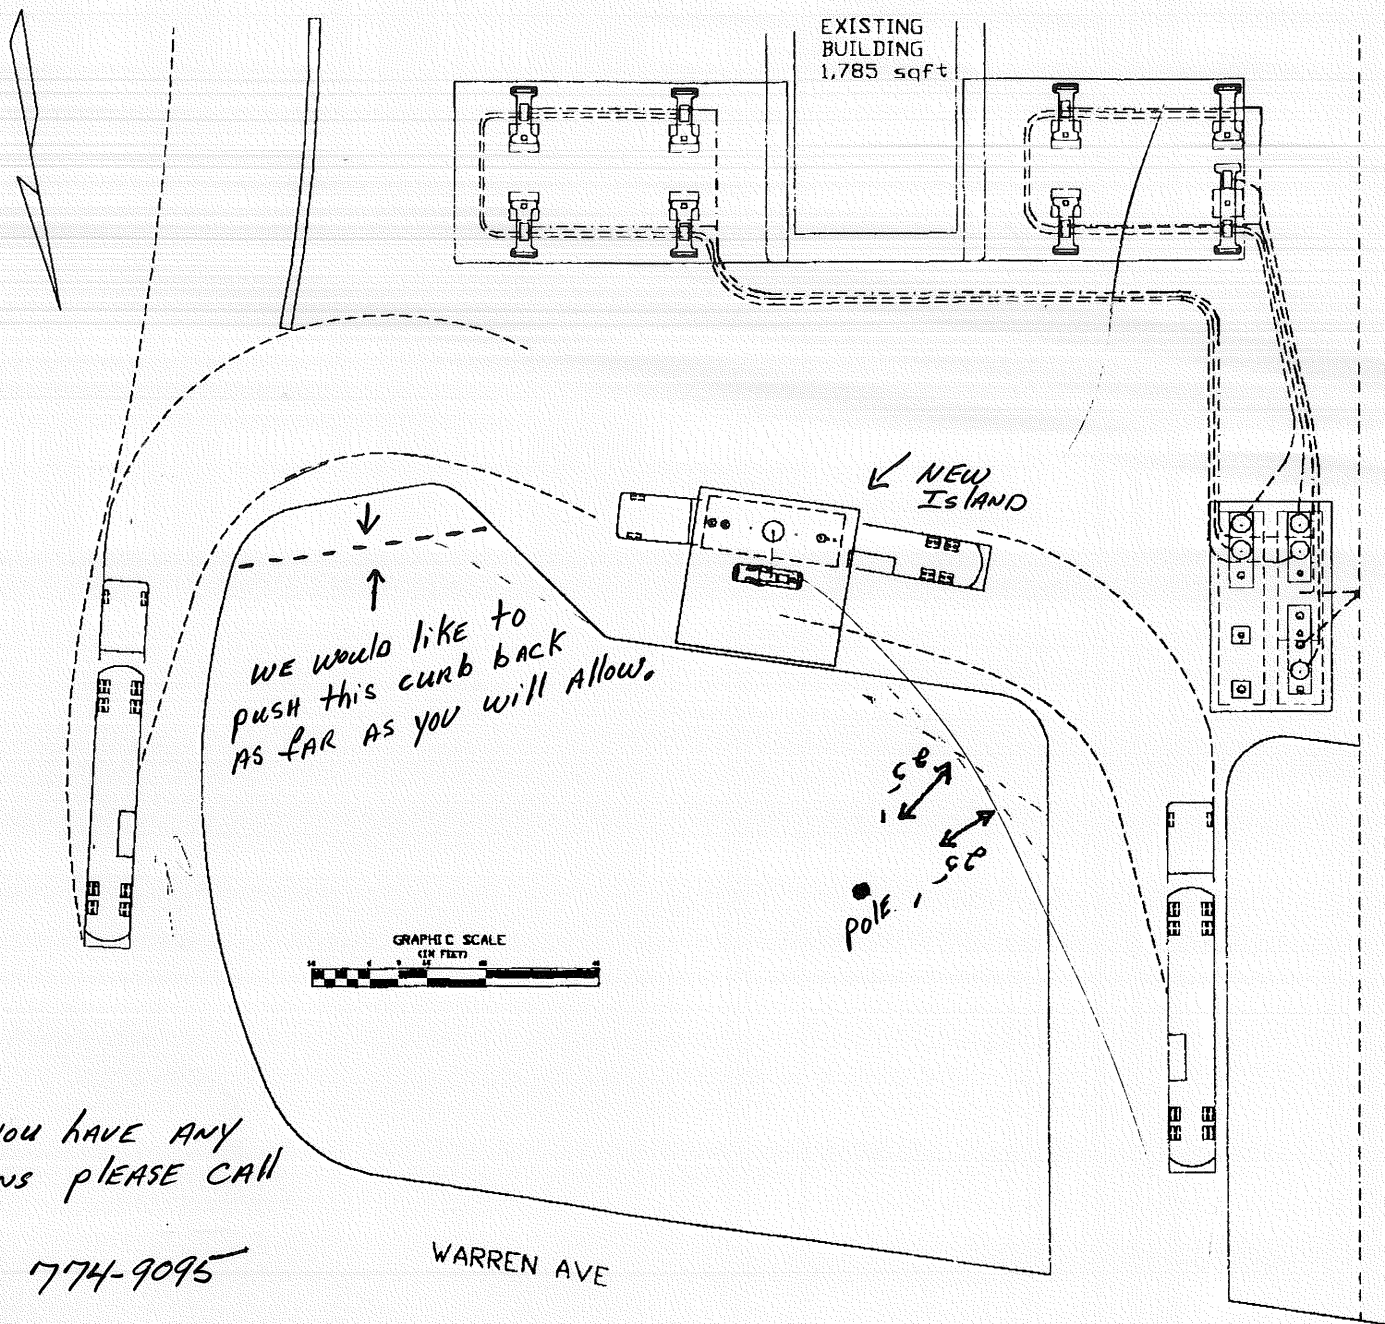 EXISTING
BUILDING
1,785 sqft
NEW
ISLAND
WE WOULD LIKE TO
PUSH THIS CURB BACK
AS FAR AS YOU WILL ALLOW.
POLE
GRAPHIC SCALE
(IN FEET)
YOU HAVE ANY
PLEASE CALL
774-9095
WARREN AVE